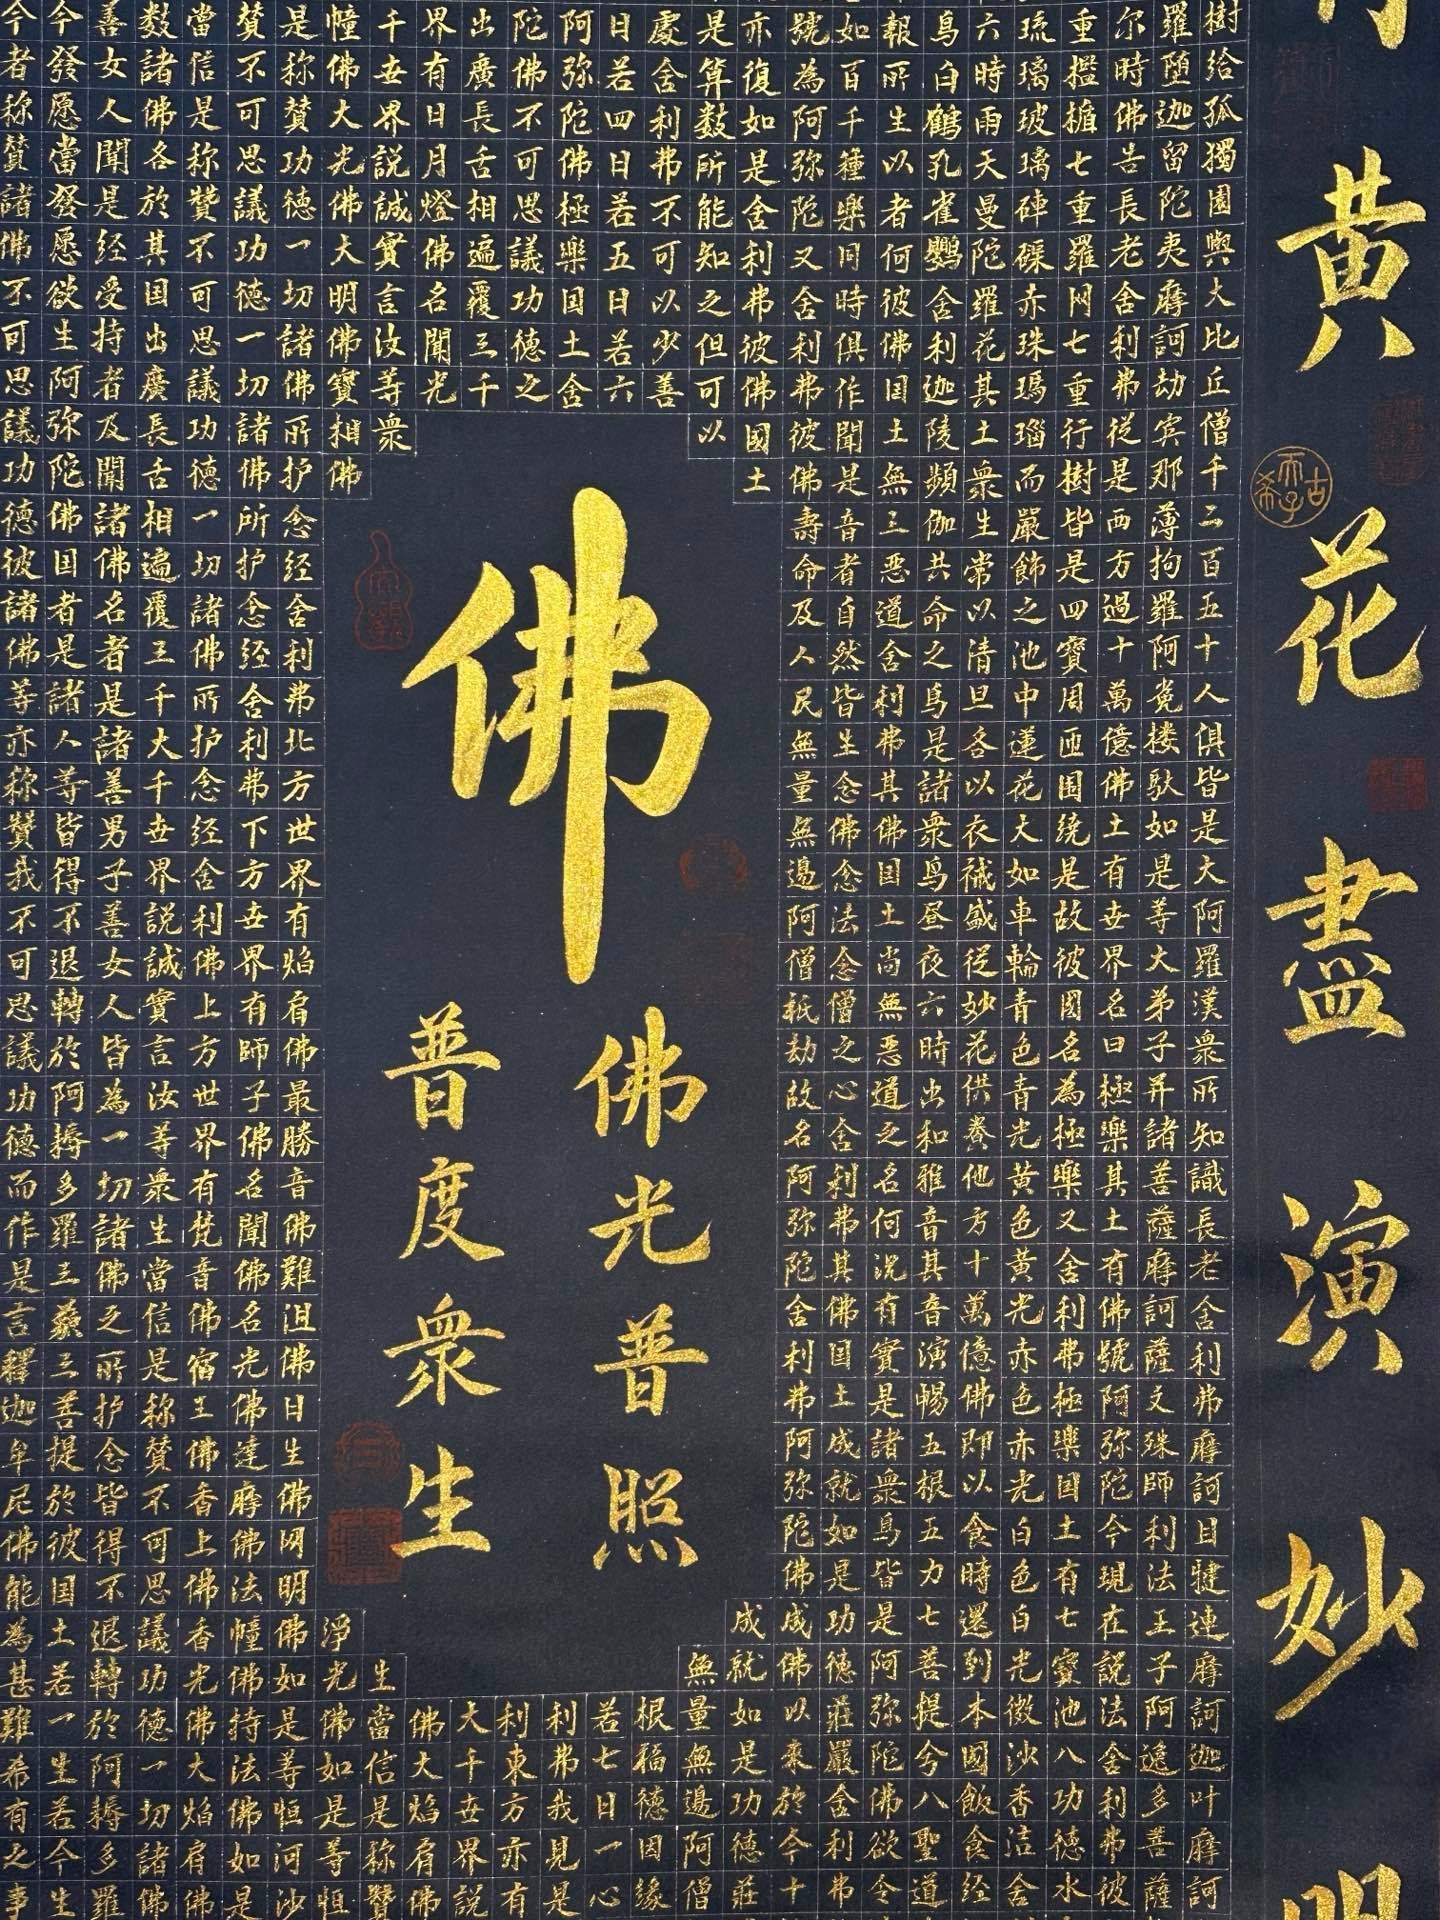 黄花盡演妙
天子古希
樹給孤獨園與大比丘僧千二百五十人俱皆是大阿羅漢衆所知識長老舍利弗摩訶目犍連摩訶迦叶摩訶
羅堕迦留陀夷摩訶劫宾那薄拘羅阿㝹楼馱如是等大弟子并諸菩薩摩訶薩文殊師利法王子阿逸多菩薩
尔時佛告長老舍利弗從是西方過十萬億佛土有世界名曰極樂其土有佛號阿弥陀今現在説法舍利弗彼
重檻楯七重羅网七重行樹皆是四寳周匝围绕是故彼國名為極樂又舍利弗極樂国土有七寳池八功德水
琉璃玻璃硨磲赤珠瑪瑙而嚴飾之池中蓮花大如車輪青色青光黄色黄光赤色赤光白色白光微沙香洁舍
六時雨天曼陀羅花其土衆生常以清旦各以衣祴盛從妙花供養他方十萬億佛即以食時還到本國飯食经
鳥白鶴孔雀鸚舍利迦陵頻伽共命之鳥是諸衆鸟昼夜六時出和雅音其音演暢五根五力七菩提兮八聖道
報所生以者何彼佛国土無三恶道舍利弗其佛国土尚無恶道之名何况有實是諸衆鸟皆是阿弥陀佛欲令
如百千種樂同時俱作聞是音者自然皆生念佛念法念僧之心舍利弗其佛国土成就如是功德莊嚴舍利弗
號為阿弥陀又舍利弗彼佛壽命及人民無量無邊阿僧祇劫故名阿弥陀舍利弗阿弥陀佛成佛以來於今十
亦復如是舍利弗彼佛國土
成就如是功德莊
是算数所能知之但可以
無量無邊阿僧
處舍利弗不可以少善
根福德因緣
日若四日若五日若六
若七日一心
阿弥陀佛極樂国土舍
利弗我見是
陀佛不可思議功德之
利東方亦有
出廣長舌相遍覆三千
大千世界説
界有日月燈佛名聞光
佛大焰肩佛
千世界説誠實言汝等衆
生當信是称贊
幢佛大光佛大明佛寳相佛
淨光佛如是等恒
佛
佛光普照
普度衆生
是称赞功德一切諸佛所护念经舍利弗北方世界有焰肩佛最勝音佛難沮佛日生佛网明佛如是等恒河沙
赞不可思議功德一切諸佛所护念经舍利弗下方世界有師子佛名聞佛名光佛達摩佛法幢佛持法佛如是
當信是称赞不可思議功德一切諸佛所护念经舍利佛上方世界有梵音佛宿王佛香上佛香光佛大焰肩佛
数諸佛各於其国出廣長舌相遍覆三千大千世界説誠實言汝等衆生當信是称赞不可思議功德一切諸佛
善女人聞是经受持者及聞諸佛名者是諸善男子善女人皆為一切諸佛之所护念皆得不退轉於阿耨多羅
今發愿當發愿欲生阿弥陀佛国者是諸人等皆得不退轉於阿耨多羅三藐三菩提於彼国土若一生若今生
今者称赞諸佛不可思議功德彼諸佛等亦称赞我不可思議功德而作是言釋迦牟尼佛能為甚難希有之事